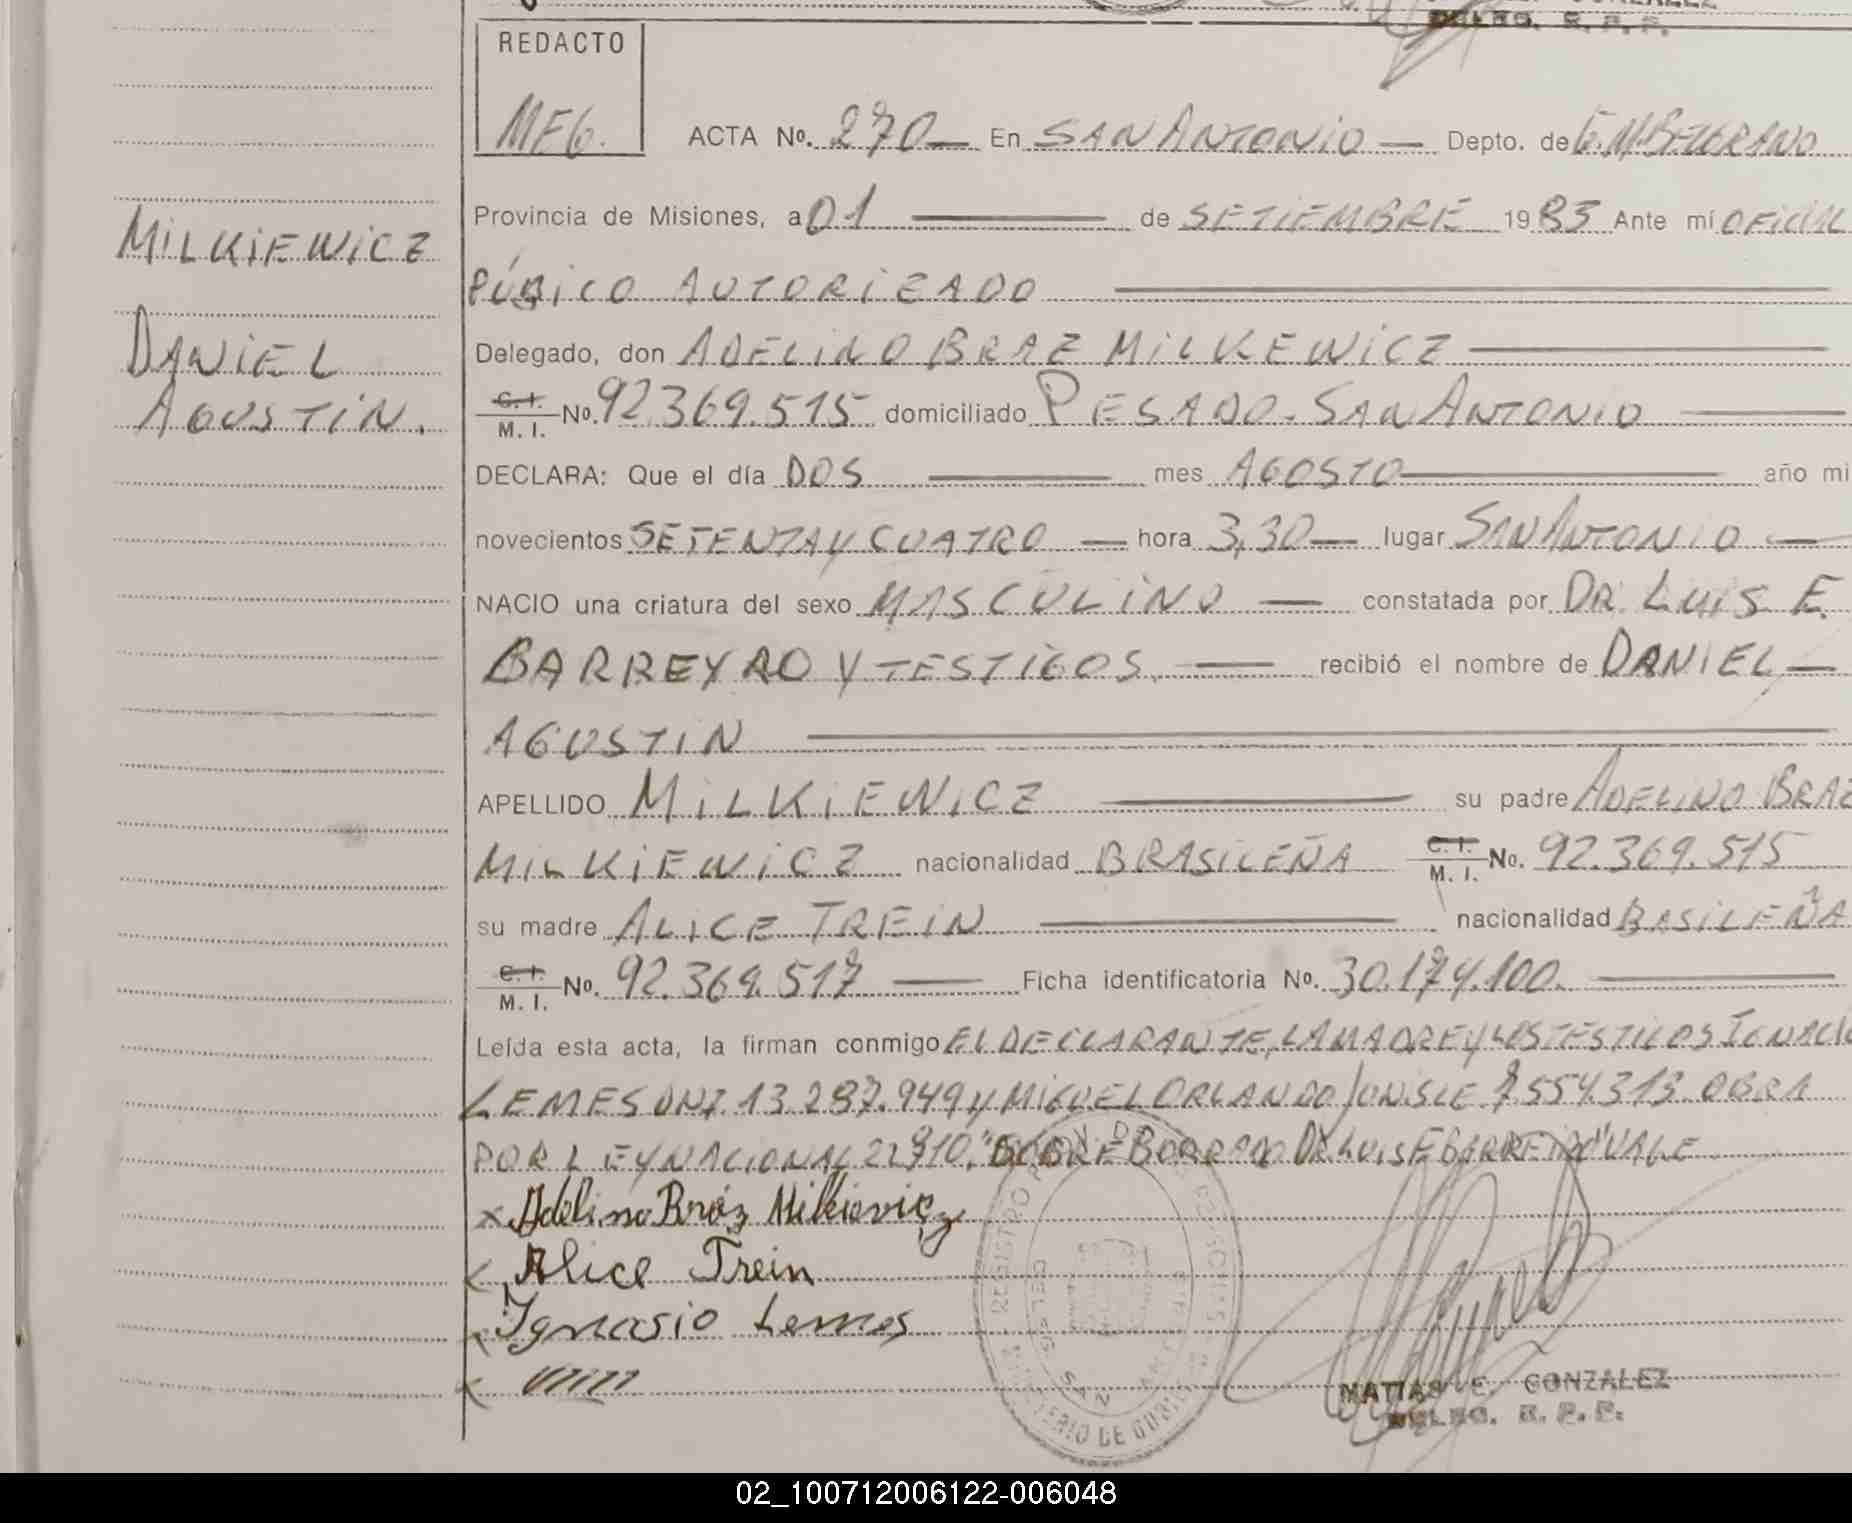 DELEG. R. P. P.
REDACTO
MEG.
ACTA No. 270 — En SAN ANTONIO — Depto. de G. M. BELGRANO
Provincia de Misiones, a 01 — de SETIEMBRE 1983 Ante mí OFICIAL
MILKIEWICZ
PÚBICO AUTORIZADO
Delegado, don ADELINO BRAZ MILKEWICZ
DANIEL
AGUSTIN.
C. I. / M. I. No. 92.369.515 domiciliado PESADO - SAN ANTONIO
DECLARA: Que el día DOS — mes AGOSTO — año mi
novecientos SETENTA Y CUATRO — hora 3,30 — lugar SAN ANTONIO —
NACIO una criatura del sexo MASCULINO — constatada por DR. LUIS E.
BARREYRO Y TESTIGOS. — recibió el nombre de DANIEL —
AGUSTIN
APELLIDO MILKIEWICZ — su padre ADELINO BRAZ
MILKIEWICZ nacionalidad BRASILEÑA C. I. / M. I. No. 92.369.515
su madre ALICE TREIN — nacionalidad BASILEÑA
C. I. / M. I. No. 92.369.517 — Ficha identificatoria No. 30.174.100. —
Leída esta acta, la firman conmigo EL DECLARANTE, LA MADRE Y LOS TESTIGOS IGNACIO
LEMES DNI. 13.287.949 Y MIGUEL ORLANDO 7554.313. OBRA
POR LEY NACIONAL 22910. "SOBRE BORRADO DR. LUIS E BARREIRO" VALE
x Adelino Bráz Milkievicz
Alice Trein
Ygnasio Lemes
REGISTRO PROV. DE LAS PERSONAS
MINISTERIO DE GOB
SAN ANTONIO
MATIAS E. GONZALEZ
DELEG. R. P. P.
02_100712006122-006048